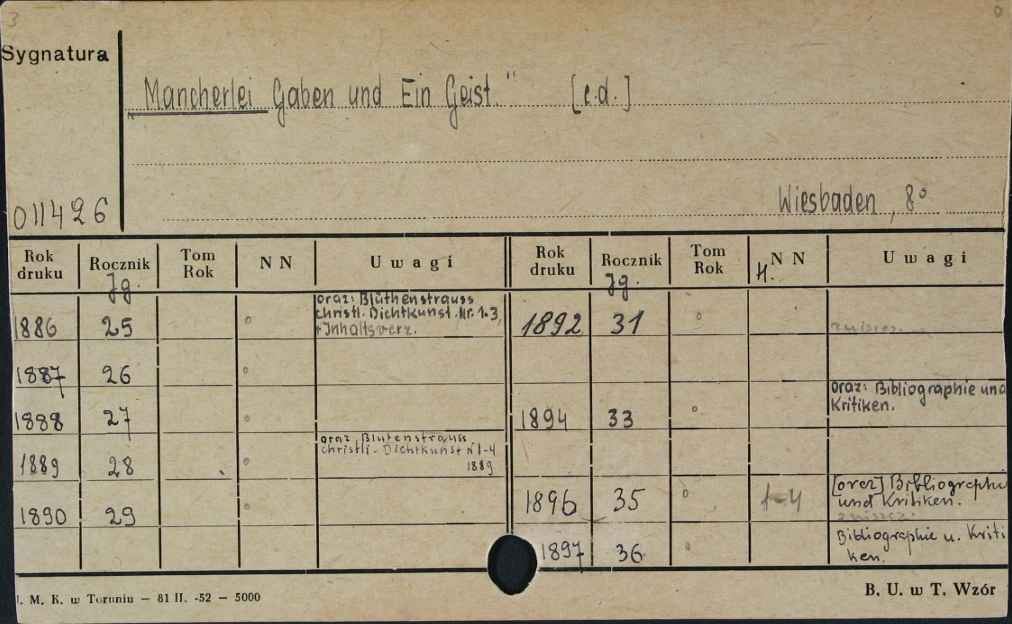 3
Sygnatura
Mancherlei Gaben und Ein Geist." [e.d.]
011426
Wiesbaden, 8°
Rok druku Rocznik Tom Rok N N Uwagi Rok druku Rocznik Tom Rok N N Uwagi
Jg. Jg. H.
1886 25 ° oraz: Blüthenstrauss
christl. Dichtkunst Nr. 1-3,
+ Inhaltsverz.
1887 26 °
1888 27 °
1889 28 ° oraz Blutenstrauss
christli. Dichtkunst N 1-4
1889
1890 29 °
1892 31 °
1894 33 ° oraz: Bibliographie und
Kritiken.
1896 35 ° 1-4 [oraz] Bibliographie
und Kritiken.
1897 36 ° Bibliographie u. Kriti
ken.
. M. K. w Toruniu — 81 II. -52 — 5000
B. U. w T. Wzór